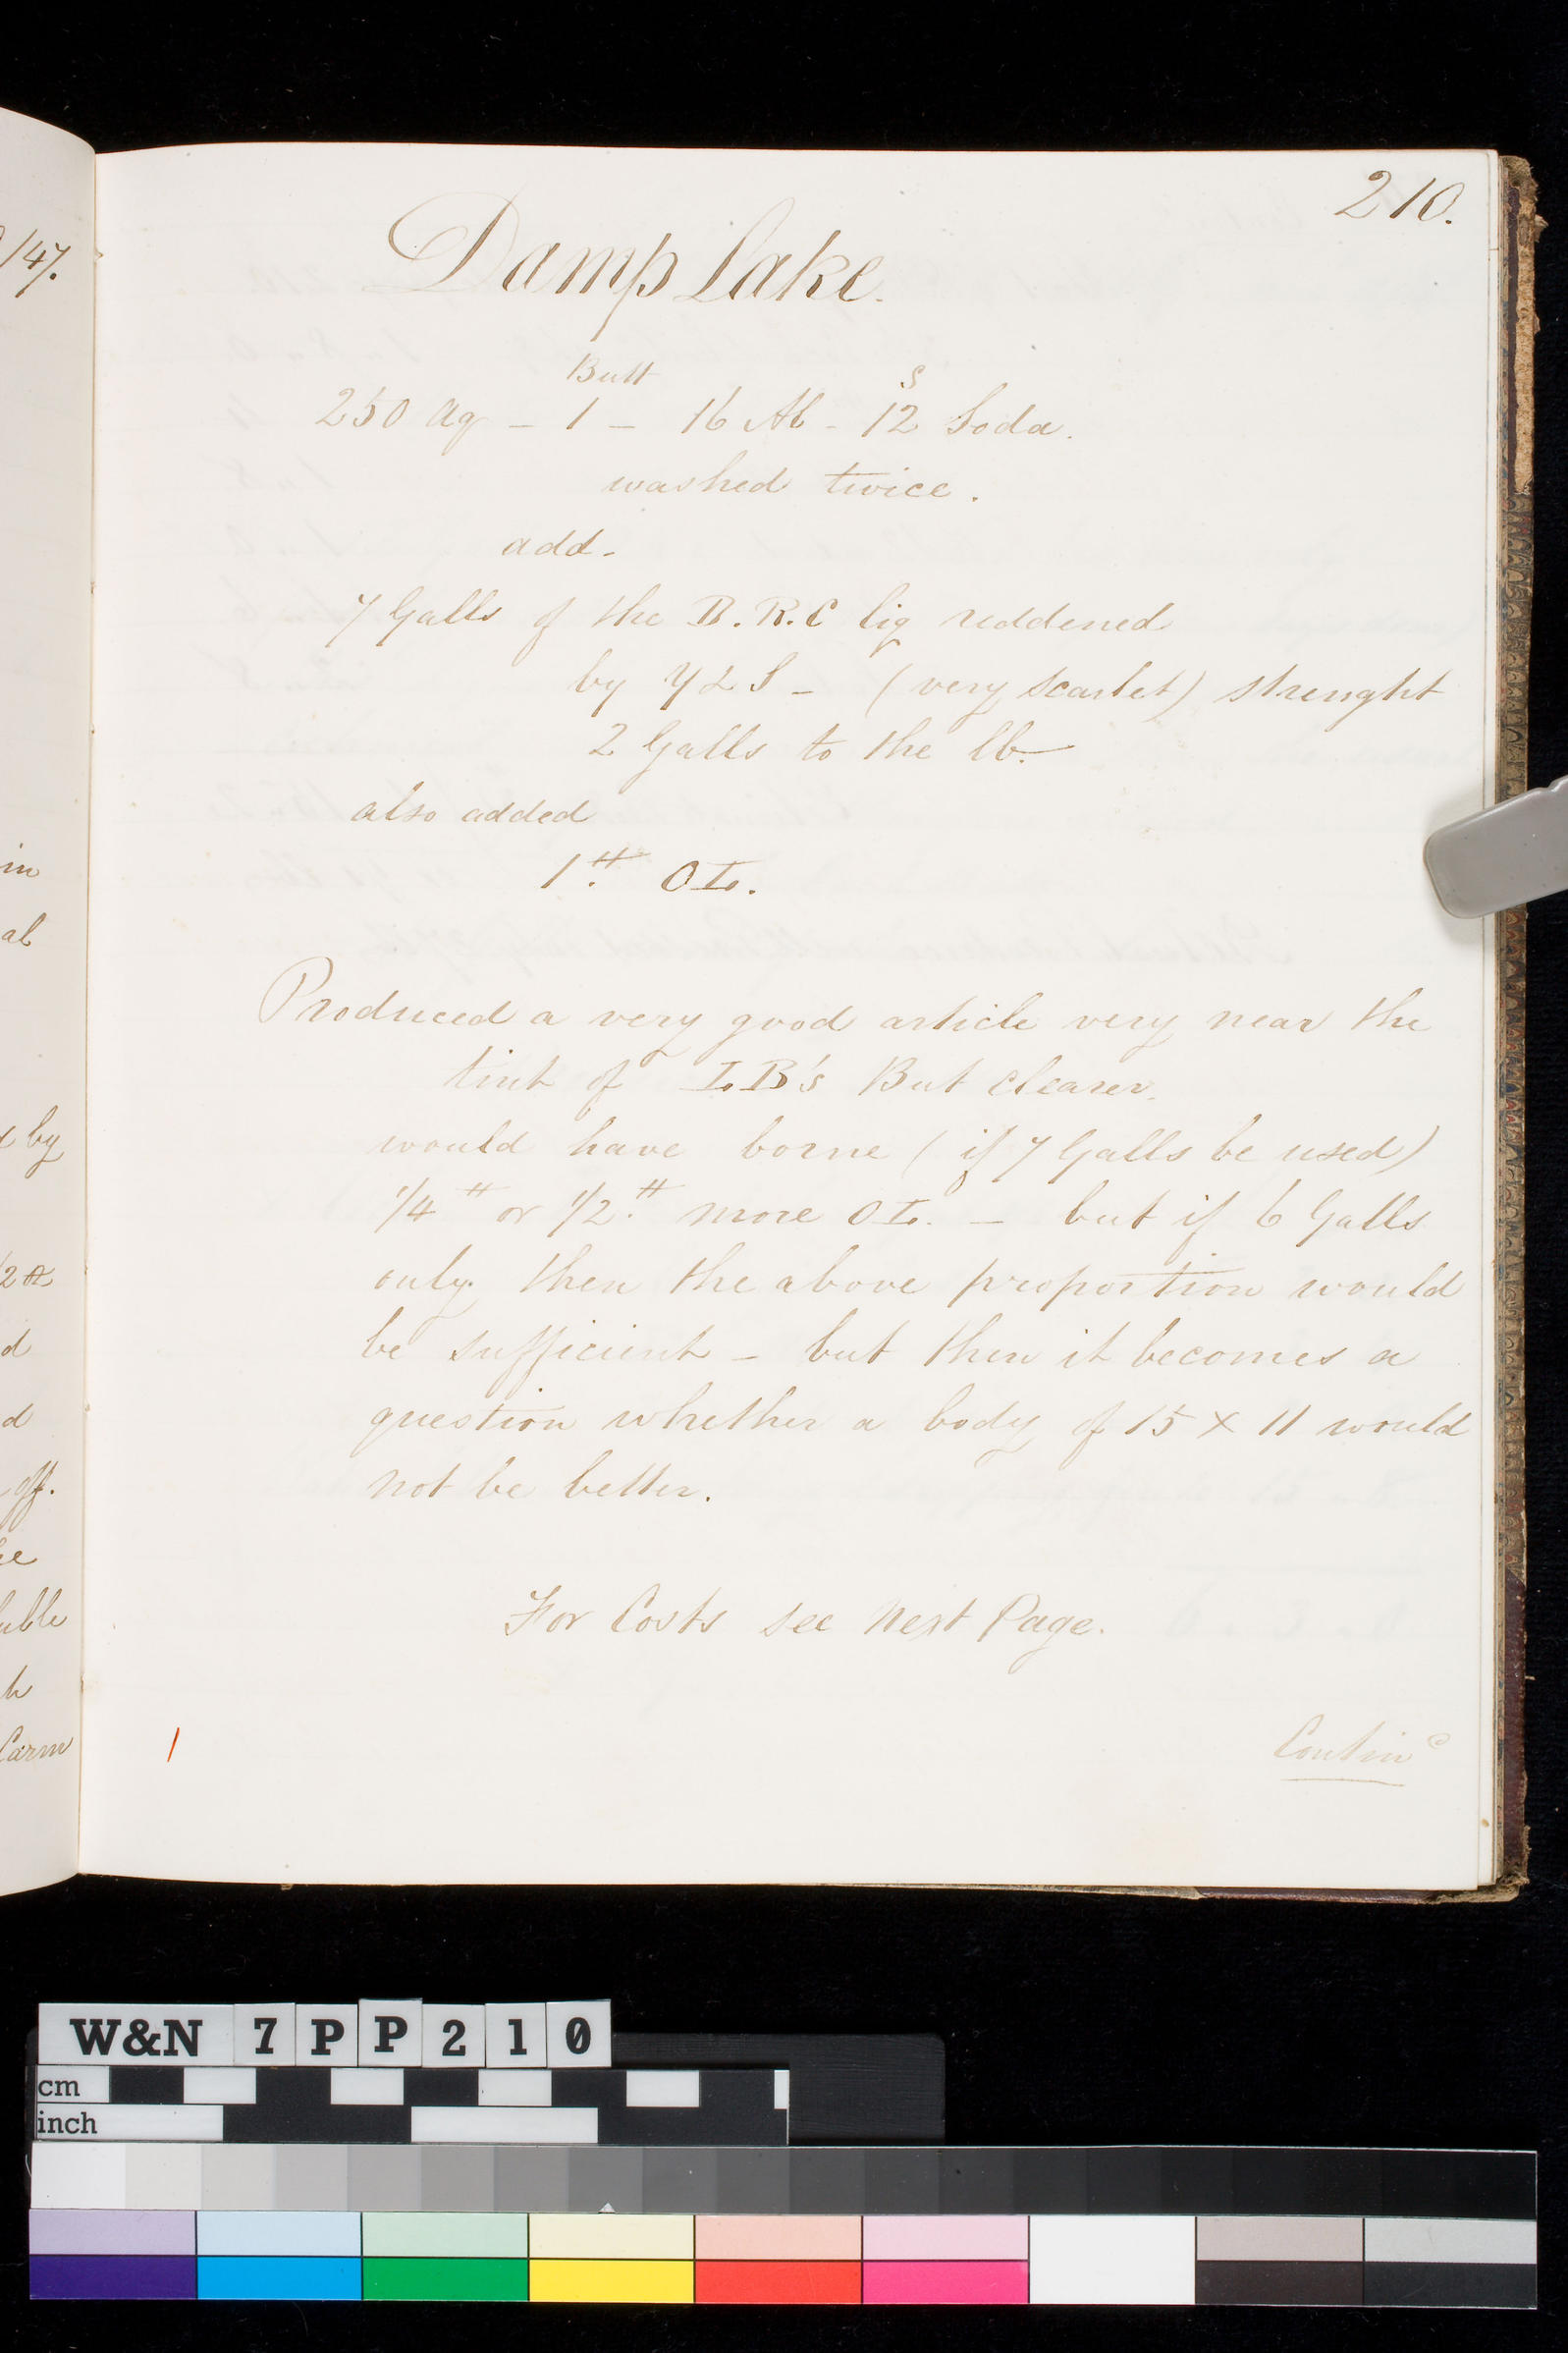 210.
147.
Damp Lake.
Butt S
250 Aq - 1 - 16 Al - 12 Soda.
washed twice.
add -
7 Galls of the B.R.C liq reddened
by Y L S - (very scarlet) strenght
2 Galls to the lb.
also added
1 #. OL.
in
al
Produced a very good article very near the
tint of LB's But clearer.
would have borne (if 7 Galls be used)
by
1/4 # or 1/2 # more OL. - but if 6 Galls
only then the above proportion would
d
be sufficient - but then it becomes a
d
question whether a body of 15 x 11 would
off.
not be better.
For Costs see Next Page.
Carm
Contin
W&N 7PP210
cm
inch